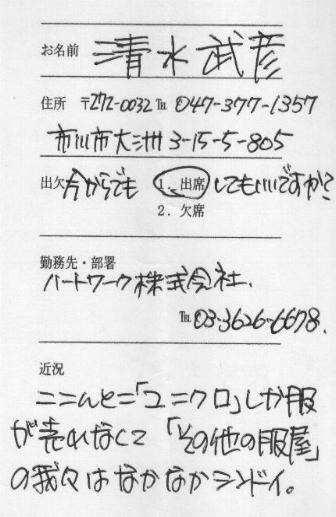 お名前 清水武彦
住所 〒272-0032 ℡ 047-377-1357
市川市大洲 3-15-5-805
出欠 今からでも 1. 出席 してもいいですか?
2. 欠席
勤務先・部署
ハートワーク株式会社.
℡ 03-3626-6678.
近況
ここんとこ「ユニクロ」しか服
が売れなくて「その他の服屋」
の我々はなかなかシンドイ。